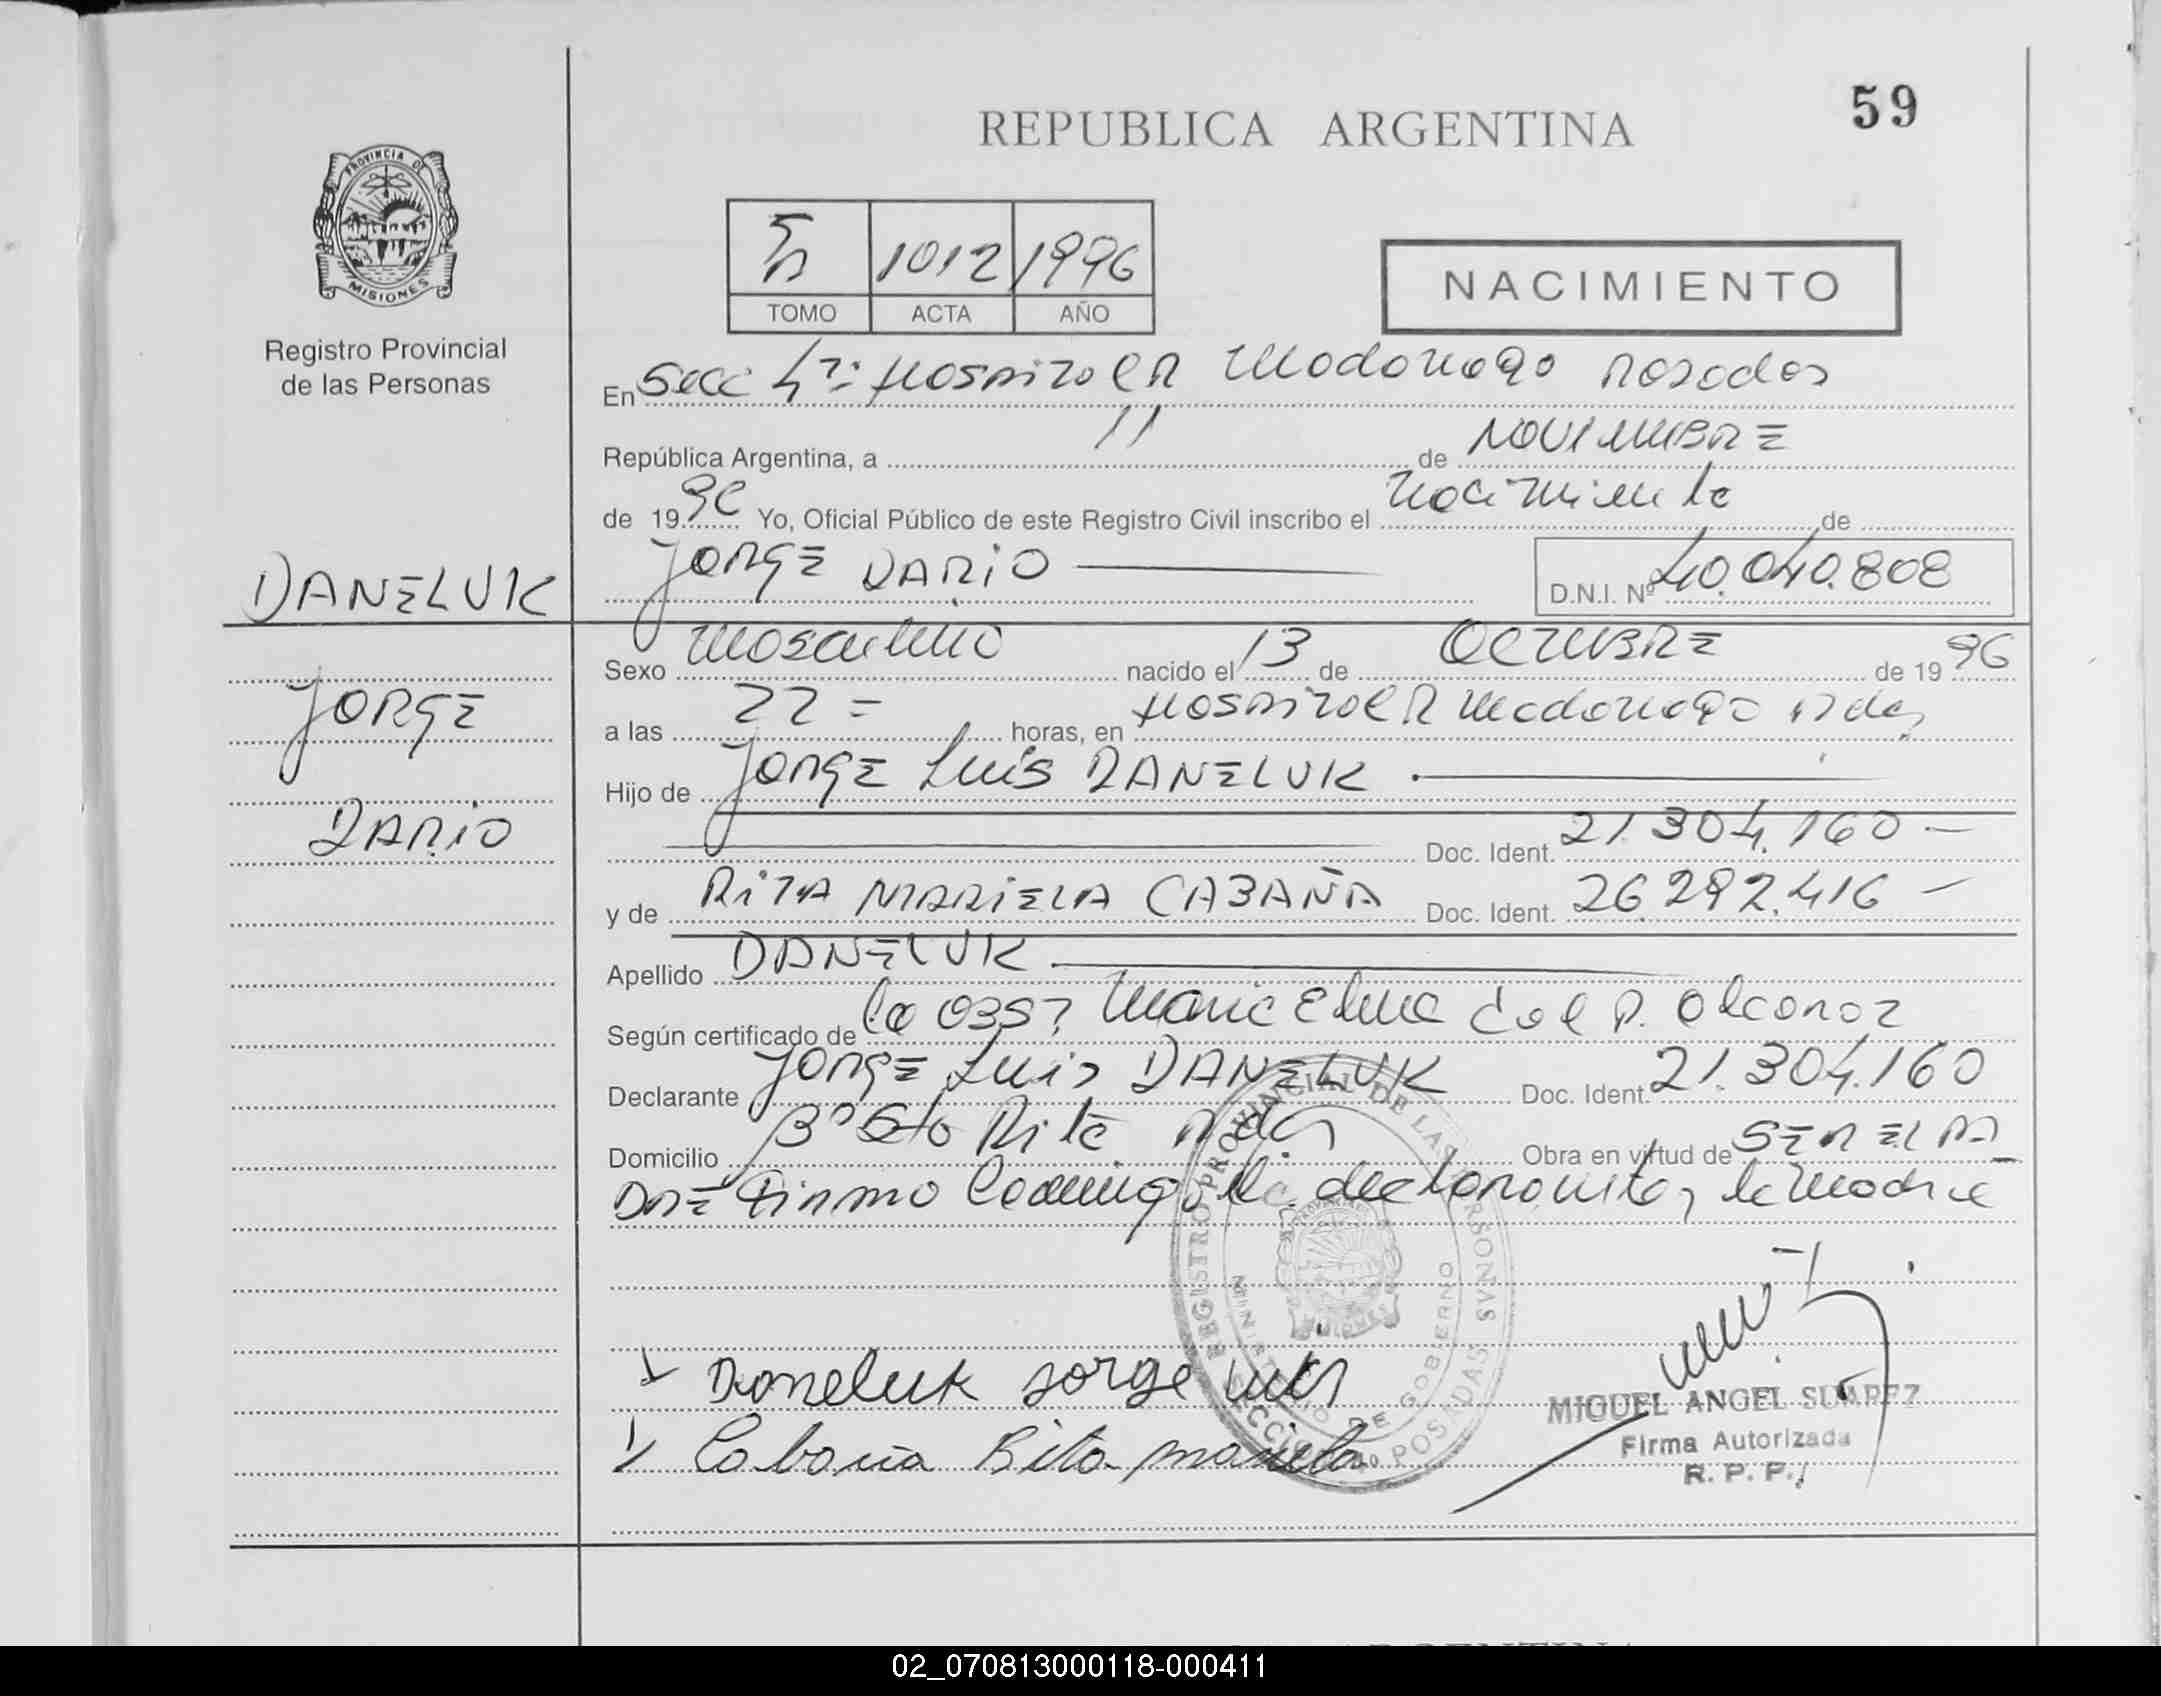 59
REPUBLICA ARGENTINA
PROVINCIA DE
MISIONES
Registro Provincial
de las Personas
1012 1996
TOMO ACTA AÑO
NACIMIENTO
En Secc 4ª: Hospital R Madariaga Posadas
República Argentina, a 11 de NOVIEMBRE
de 1996 Yo, Oficial Público de este Registro Civil inscribo el Nacimiento de
JORGE DARIO
D.N.I. Nº 40.040.808
DANELUK
JORGE
DARIO
Sexo Masculino nacido el 13 de OCTUBRE de 1996
a las 22 = horas, en Hospital R Madariaga Pdas
Hijo de Jorge Luis DANELUK
Doc. Ident. 21.304.160 -
y de RITA MARIELA CABAÑA Doc. Ident. 26.292.416 -
Apellido DANELUK
Según certificado de la Obst Maria Elena del P. Alcaraz
Declarante Jorge Luis DANELUK Doc. Ident. 21.304.160
Domicilio Bº Sto Rita Pdas Obra en virtud de SER EL PA-
DRE Firma Conmigo el declarante y la madre
Daneluk Jorge Luis
Cabaña Rita mariela
REGISTRO PROVINCIAL DE LAS PERSONAS
MINISTERIO DE GOBIERNO
SECCION POSADAS
MIGUEL ANGEL SUAREZ
Firma Autorizada
R. P. P.
02_070813000118-000411